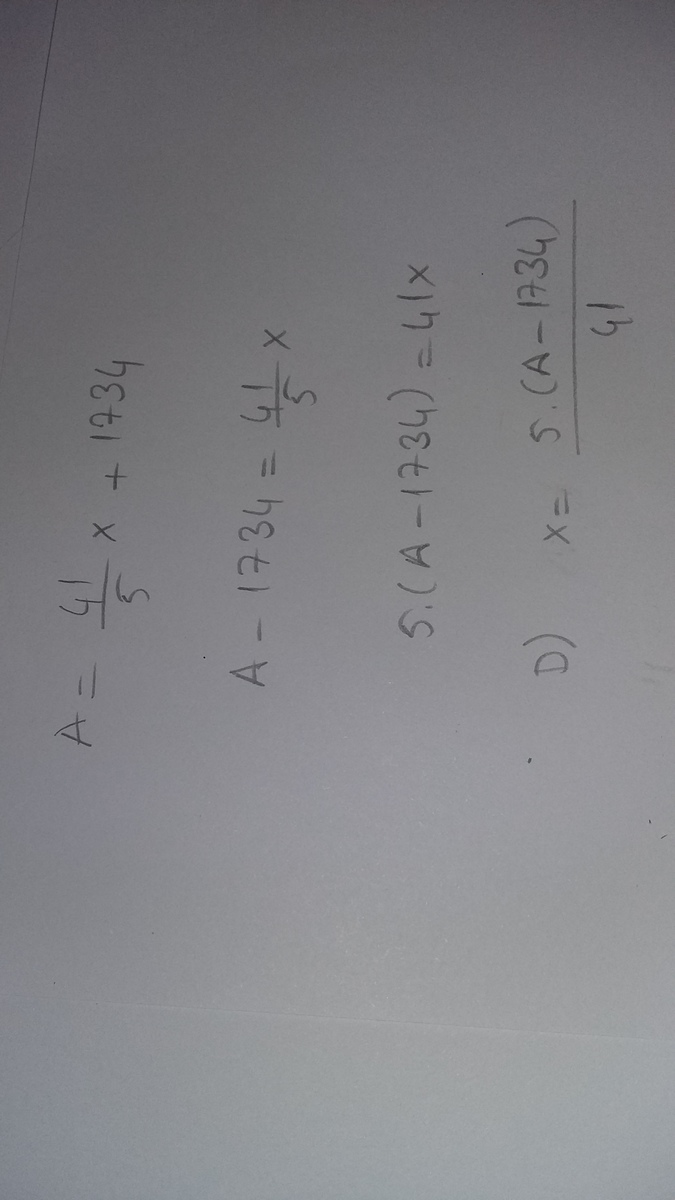 A = 41/5 x + 1734
A - 1734 = 41/5 x
5.(A - 1734) = 41x
D) x = 5.(A - 1734)/41